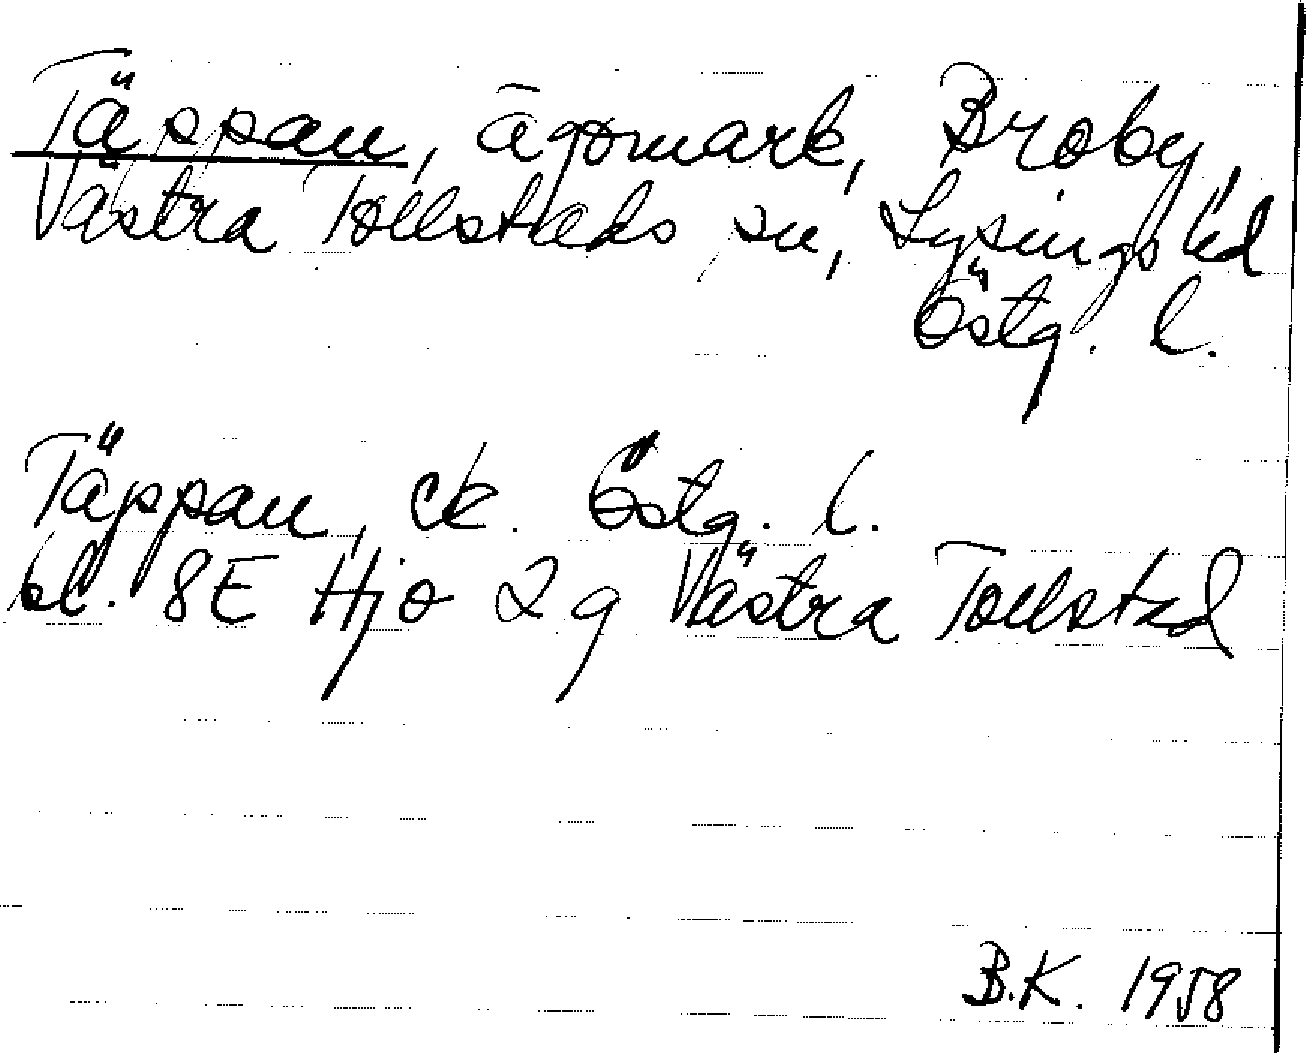 Täppan, ägomark, Broby,
Västra Tollstads sn, Lysings hd
Östg. l.
Täppan, ek. Östg. l.
bl. 8E Hjo 2g Västra Tollstad
B.K. 1958